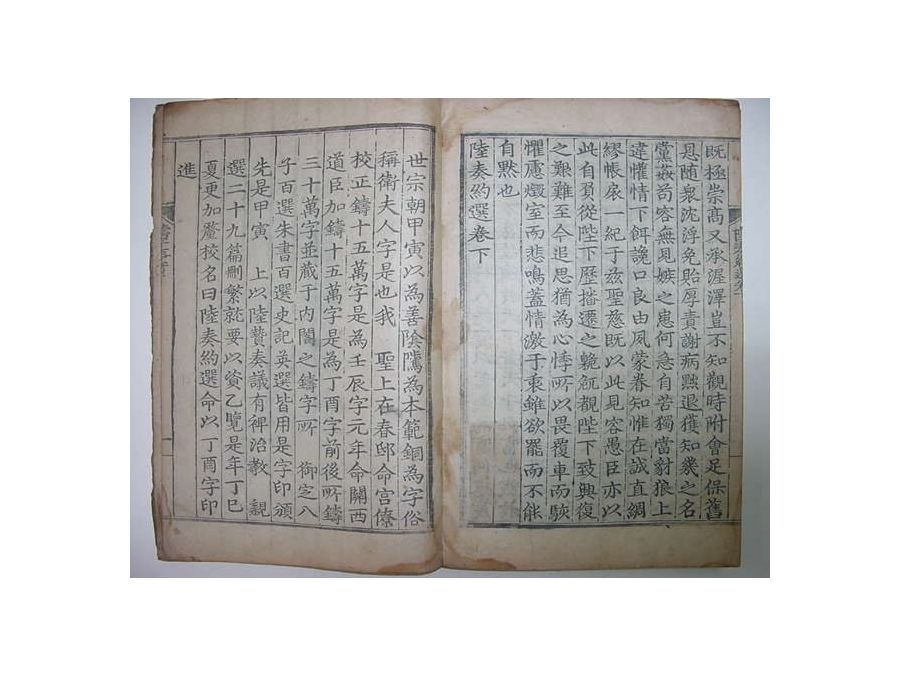 既極崇高又承渥澤豈不知觀時附會足保舊
恩随衆沈浮免貽厚責謝病黜退獲知幾之名
黨姦苟容無見嫉之患何急自苦獨當豺狼上
違懽情下餌讒口良由夙蒙眷知惟在誠直綢
繆帳扆一紀于玆聖慈既以此見容愚臣亦以
此自負從陛下歷播遷之艱危覩陛下致興復
之艱難至今追思猶為心悸所以畏覆車而駭
懼慮燬室而悲鳴盖情激于衷雖欲罷而不能
自默也
陸奏約選卷下
世宗朝甲寅以為善陰隲為本範銅為字俗
稱衛夫人字是也我 聖上在春邸命宮僚
校正鑄十五萬字是為壬辰字元年命關西
道臣加鑄十五萬字是為丁酉字前後所鑄
三十萬字並藏于内閣之鑄字所 御定八
子百選朱書百選史記英選皆用是字印頒
先是甲寅 上以陸贄奏議有裨治教 親
選二十九篇刪繁就要以資乙覽是年丁巳
夏更加釐校名曰陸奏約選命以丁酉字印
進